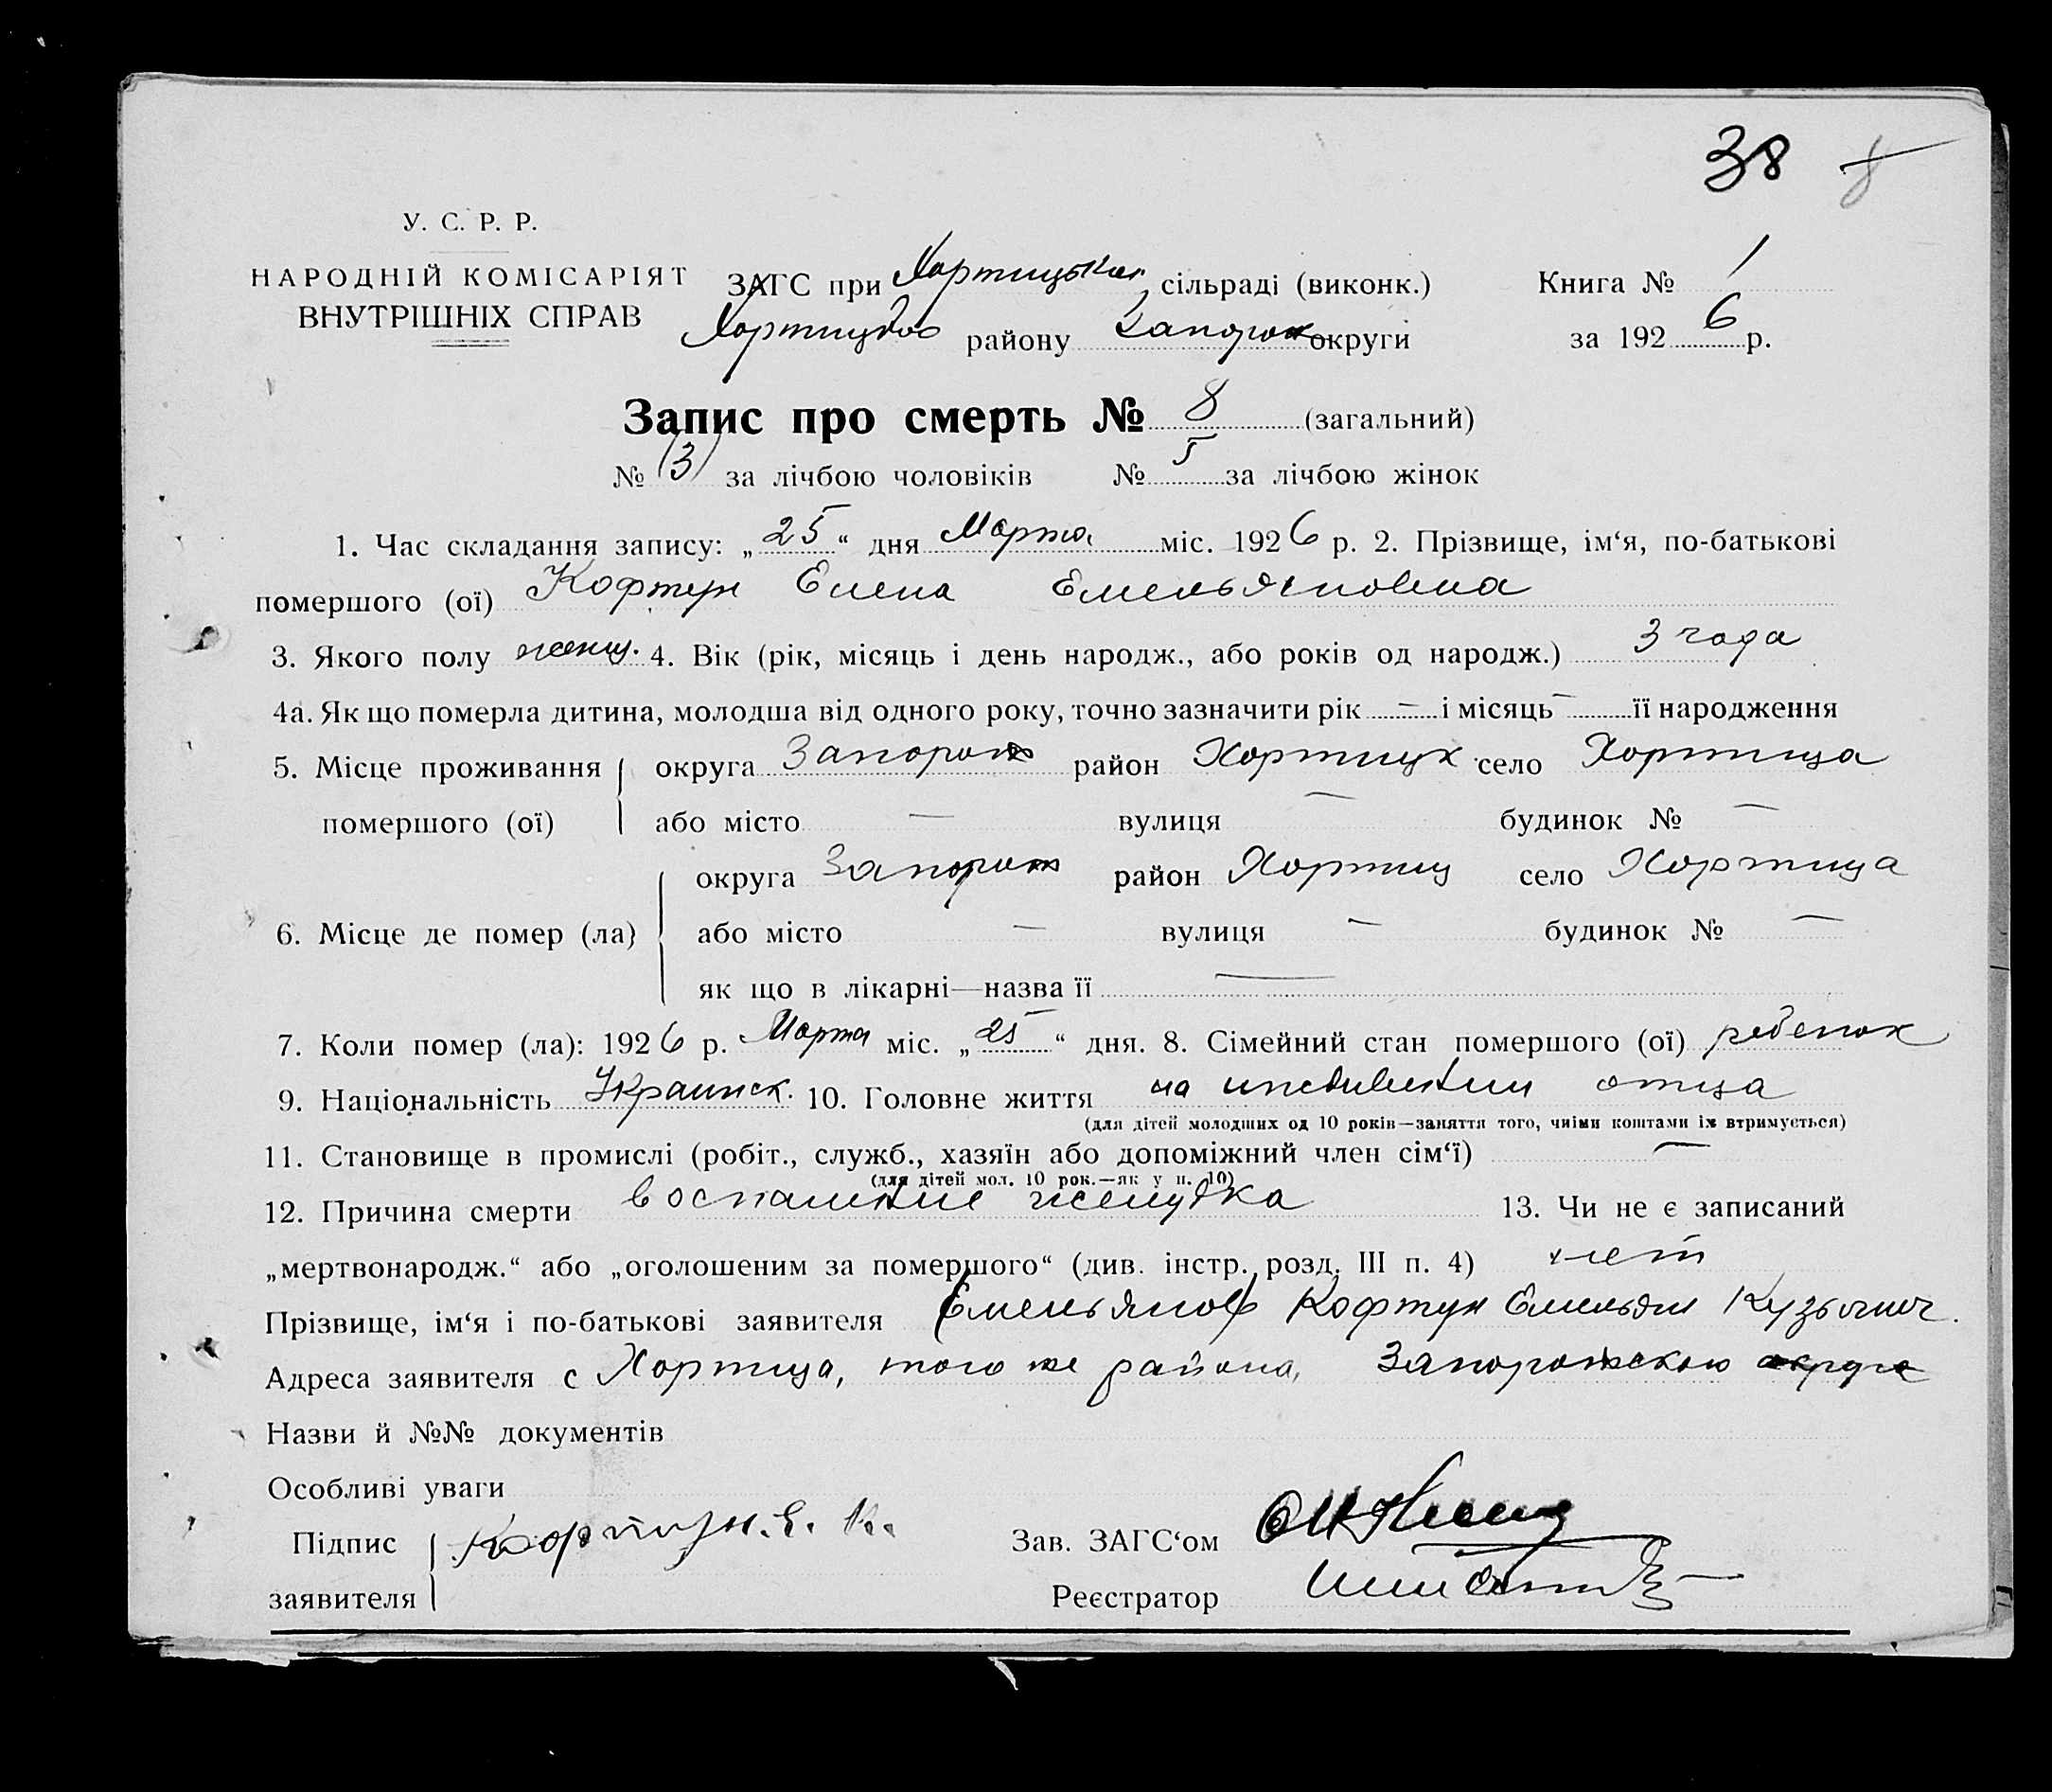 38 8
У. С. Р. Р.
НАРОДНІЙ КОМІСАРІЯТ
ВНУТРІШНІХ СПРАВ
ЗАГС при Хортицькой сільраді (виконк.) Книга № 1
Хортицкого району Запорож округи за 1926 р.
Запис про смерть № 8 (загальний)
№ (3) за лічбою чоловіків № 5 за лічбою жінок
1. Час складання запису: „25“ дня Марта міс. 1926 р. 2. Прізвище, ім‘я, по-батькові
помершого (ої) Кофтун Елена Емельяновна
3. Якого полу женщ. 4. Вік (рік, місяць і день народж., або років од народж.) 3 года
4а. Як що померла дитина, молодша від одного року, точно зазначити рік — і місяць — її народження
5. Місце проживання округа Запорож район Хортицк село Хортица
помершого (ої) або місто — вулиця — будинок № —
округа Запорож район Хортиц село Хортица
6. Місце де помер (ла) або місто — вулиця — будинок № —
як що в лікарні—назва її —
7. Коли помер (ла): 1926 р. Марта міс. „25“ дня. 8. Сімейний стан помершого (ої) ребенок
9. Національність Украинск. 10. Головне життя на иждивении отца
(для дітей молодших од 10 років—заняття того, чиїми коштами їх втримується)
11. Становище в промислі (робіт., служб., хазяїн або допоміжний член сім‘ї) —
(для дітей мол. 10 рок.—як у п. 10)
12. Причина смерти воспаление желудка 13. Чи не є записаний
„мертвонародж.“ або „оголошеним за помершого“ (див. інстр. розд. III п. 4) нет
Прізвище, ім‘я і по-батькові заявителя (Емельянов) Кофтун Емельян Кузьмич.
Адреса заявителя с Хортица, того же района, Запорожского округа
Назви й №№ документів
Особливі уваги
Підпис Кофтун. Е. К. Зав. ЗАГС‘ом
заявителя Реєстратор